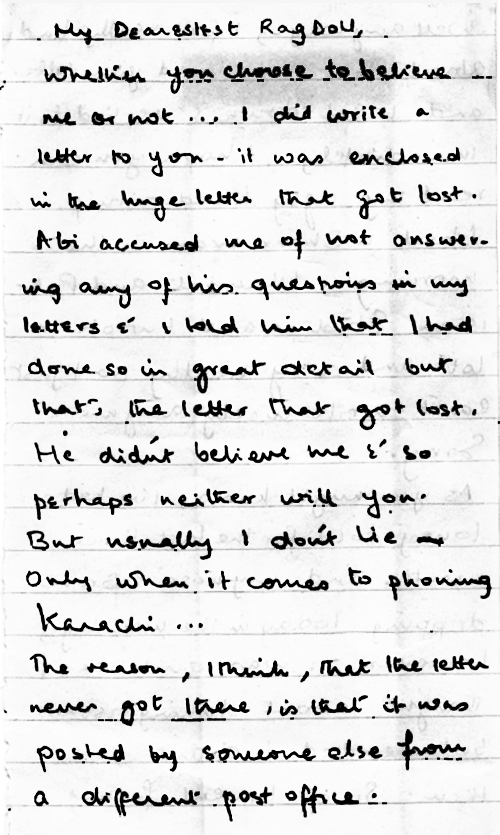 My Dearestst RagDoll,
Whether you choose to believe
me or not ... I did write a
letter to you - it was enclosed
in the huge letter that got lost.
Abi accused me of not answer-
ing any of his questions in my
letters & I told him that I had
done so in great detail but
that's the letter that got lost.
He didn't believe me & so
perhaps neither will you.
But usually I don't lie -
Only when it comes to phoning
Karachi ...
The reason, I think, that the letter
never got there, is that it was
posted by someone else from
a different post office.